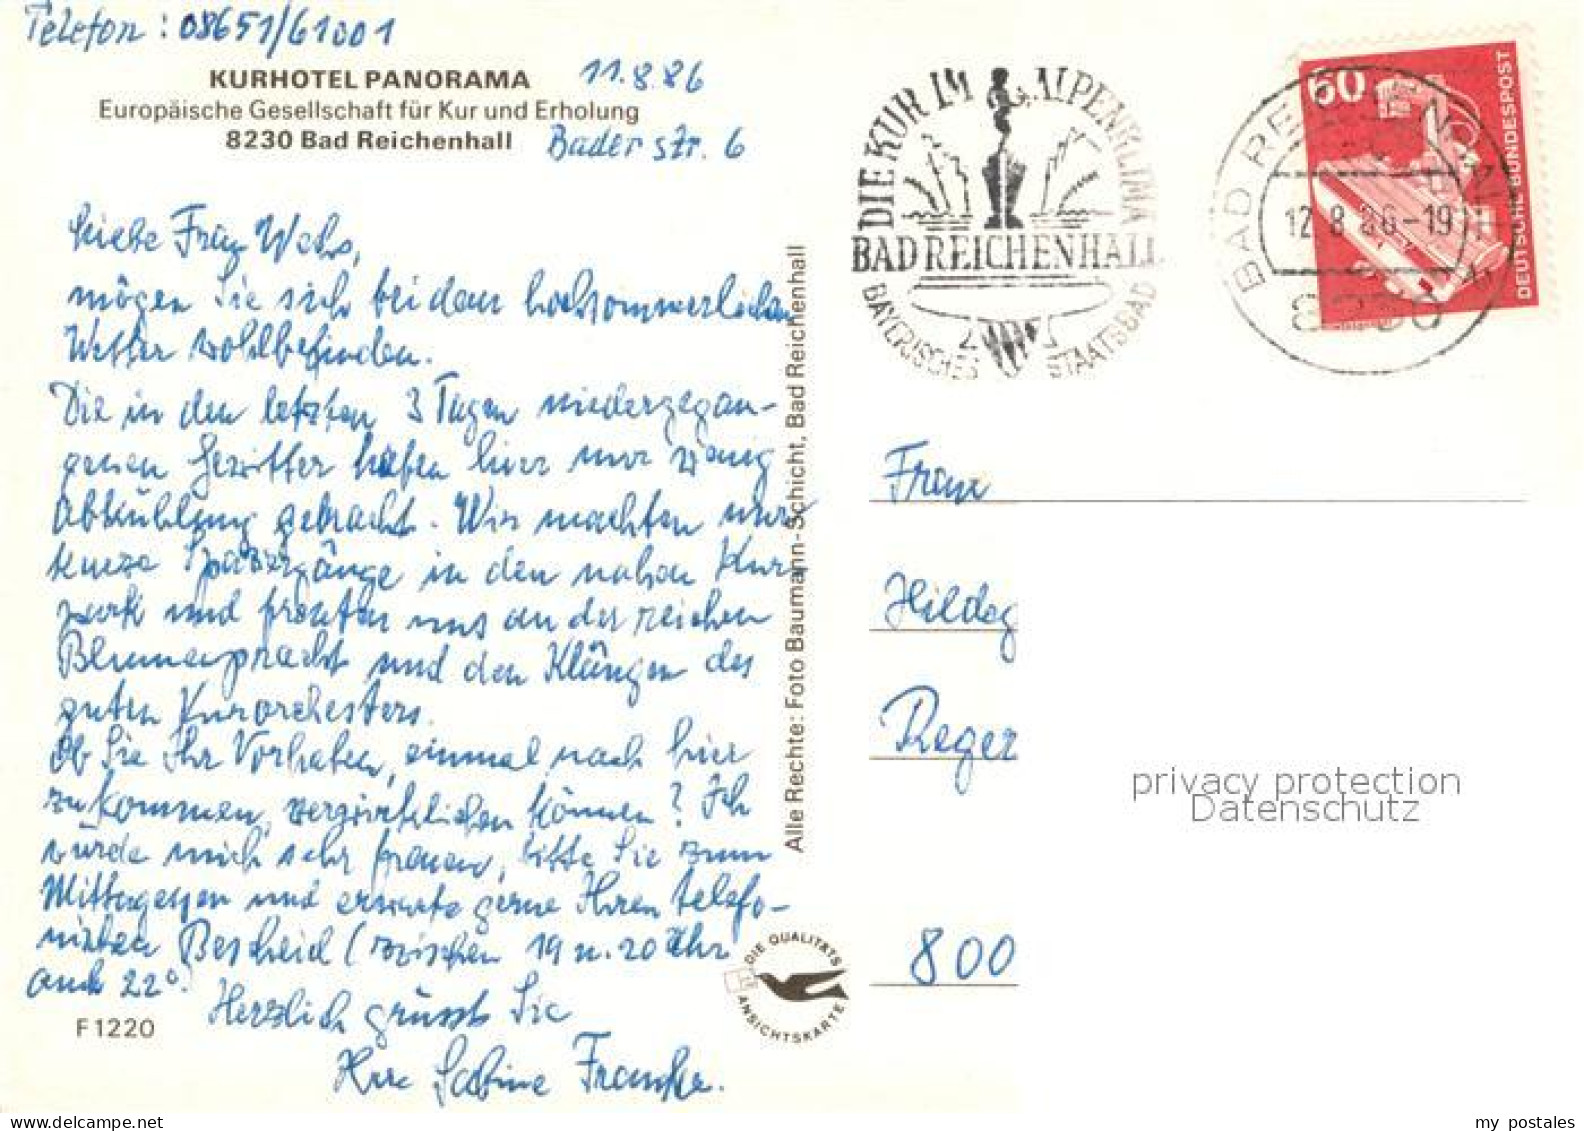 Telefon: 08651/61001
KURHOTEL PANORAMA
11.8.86
Europäische Gesellschaft für Kur und Erholung
8230 Bad Reichenhall
Baderstr. 6
Liebe Frau
mögen Sie sich bei dem hochsommerlichen
Wetter wohlbefinden.
Die in den letzten 3 Tagen niedergegan-
genen Gewitter haben hier nur wenig
Abkühlung gebracht. Wir machten nur
kurze Spaziergänge in den nahen Kur
park und freuten uns an der reichen
Blumenpracht und den Klängen des
guten Kurorchesters.
Ob Sie Ihr Vorhaben, einmal nach hier
zu kommen, verwirklichen können? Ich
würde mich sehr freuen, bitte Sie zum
Mittagessen und erwarte gerne Ihren telefo-
nischen Bescheid (zwischen 19 u. 20 Uhr
auch 22°.
Herzlich grüsst Sie
Ihre Sabine
F 1220
Alle Rechte: Foto Baumann-Schicht, Bad Reichenhall
DIE QUALITÄTS
ANSICHTSKARTE
DIE KUR IM ALPENKLIMA
BAD REICHENHALL
BAYERISCHES STAATSBAD
BAD REICHENHALL
12.8.86-19
8230
60
DEUTSCHE BUNDESPOST
Frau
Hildeg
Reger
800
privacy protection
Datenschutz
my postales